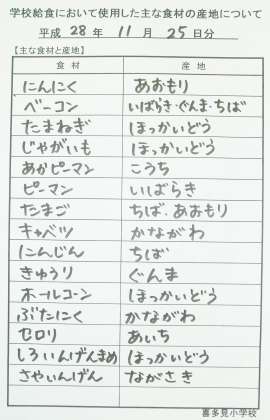 学校給食において使用した主な食材の産地について
平成 28 年 11 月 25 日分
【主な食材と産地】
食材 産地
にんにく あおもり
ベーコン いばらき・ぐんま・ちば
たまねぎ ほっかいどう
じゃがいも ほっかいどう
あかピーマン こうち
ピーマン いばらき
たまご ちば、あおもり
キャベツ かながわ
にんじん ちば
きゅうり ぐんま
ホールコーン ほっかいどう
ぶたにく かながわ
セロリ あいち
しろいんげんまめ ほっかいどう
さやいんげん ながさき
喜多見小学校